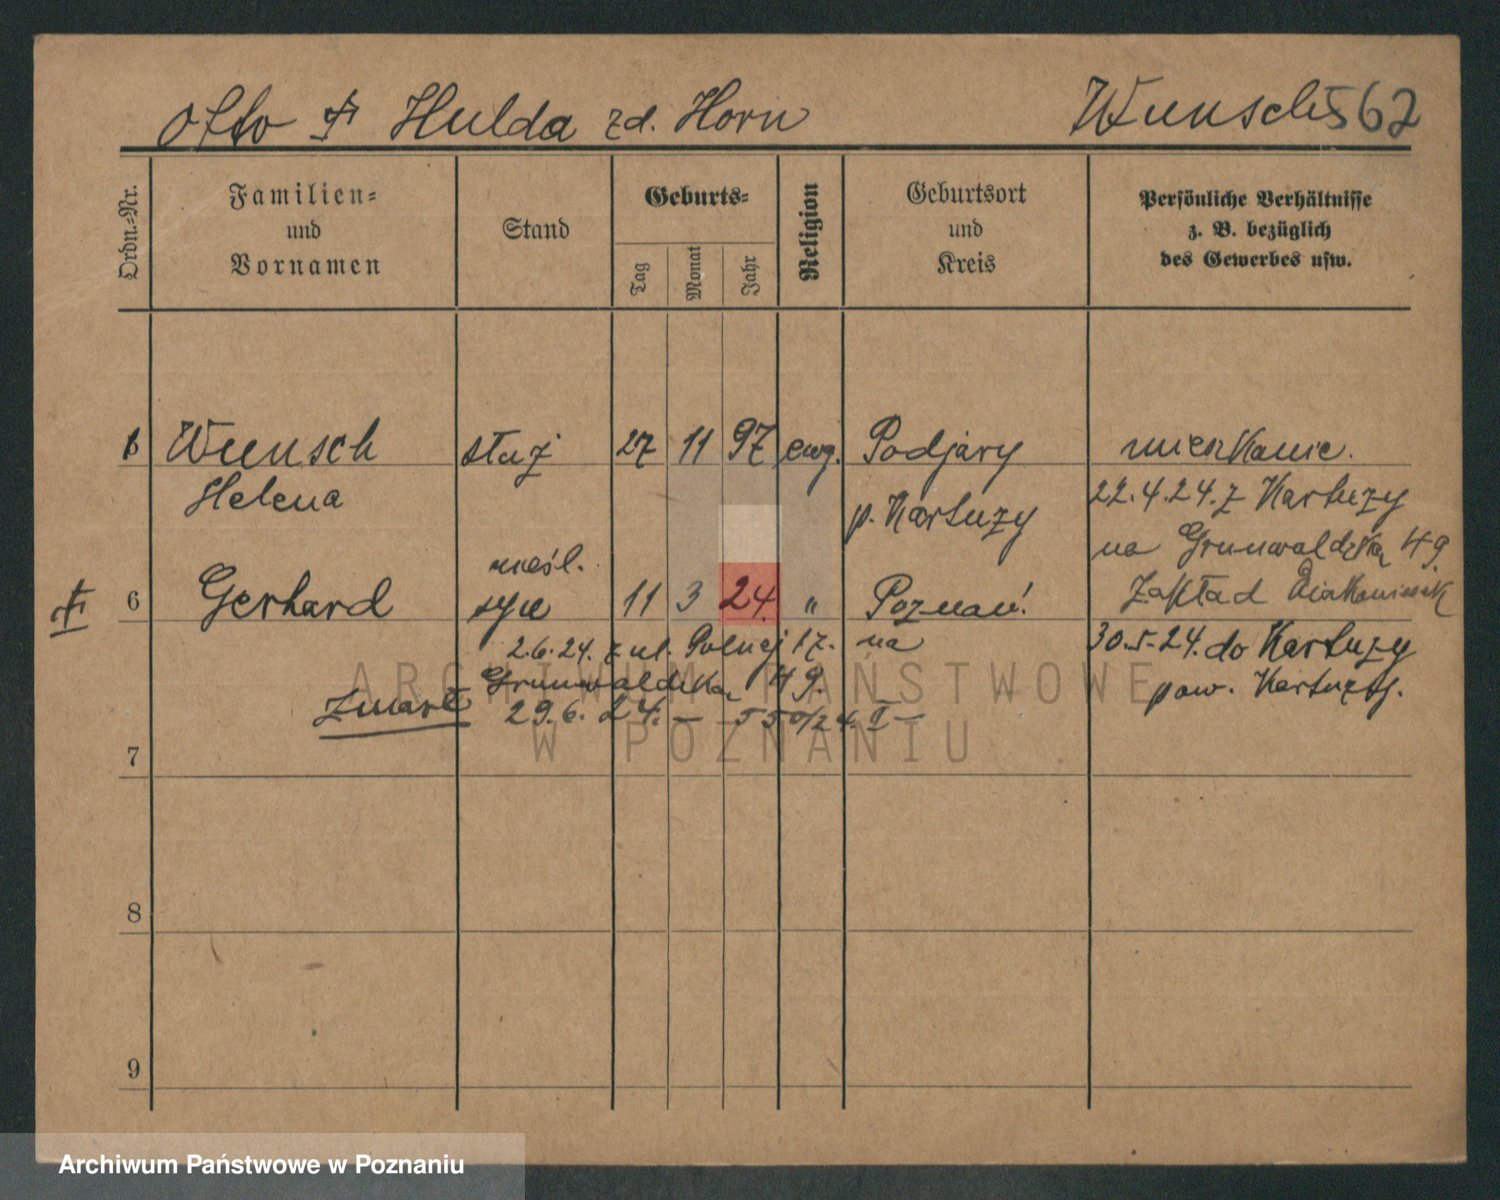 Otto † Hulda zd. Horn Wunsch 562
Ordn.-Nr.
Familien-
und
Vornamen
Stand
Geburts-
Tag
Monat
Jahr
Religion
Geburtsort
und
Kreis
Persönliche Verhältnisse
z. B. bezüglich
des Gewerbes usw.
Wunsch służ 27 11 97 ewg. Podjary
Helena p. Kartuzy
22.4.24. z Kartuzy
na Grunwaldzką 49.
Zakład
nieśl.
† 6 Gerhard syn 11 3 24. " Poznań
2.6.24. z ul. Polnej 17. na
Grunwaldzką 49.
30.5.24. do Kartuzy
pow. Kartuzy.
Zmarł 29.6.24. — 550/24. II —
7
8
9
ARCHIWUM PAŃSTWOWE
W POZNANIU
Archiwum Państwowe w Poznaniu